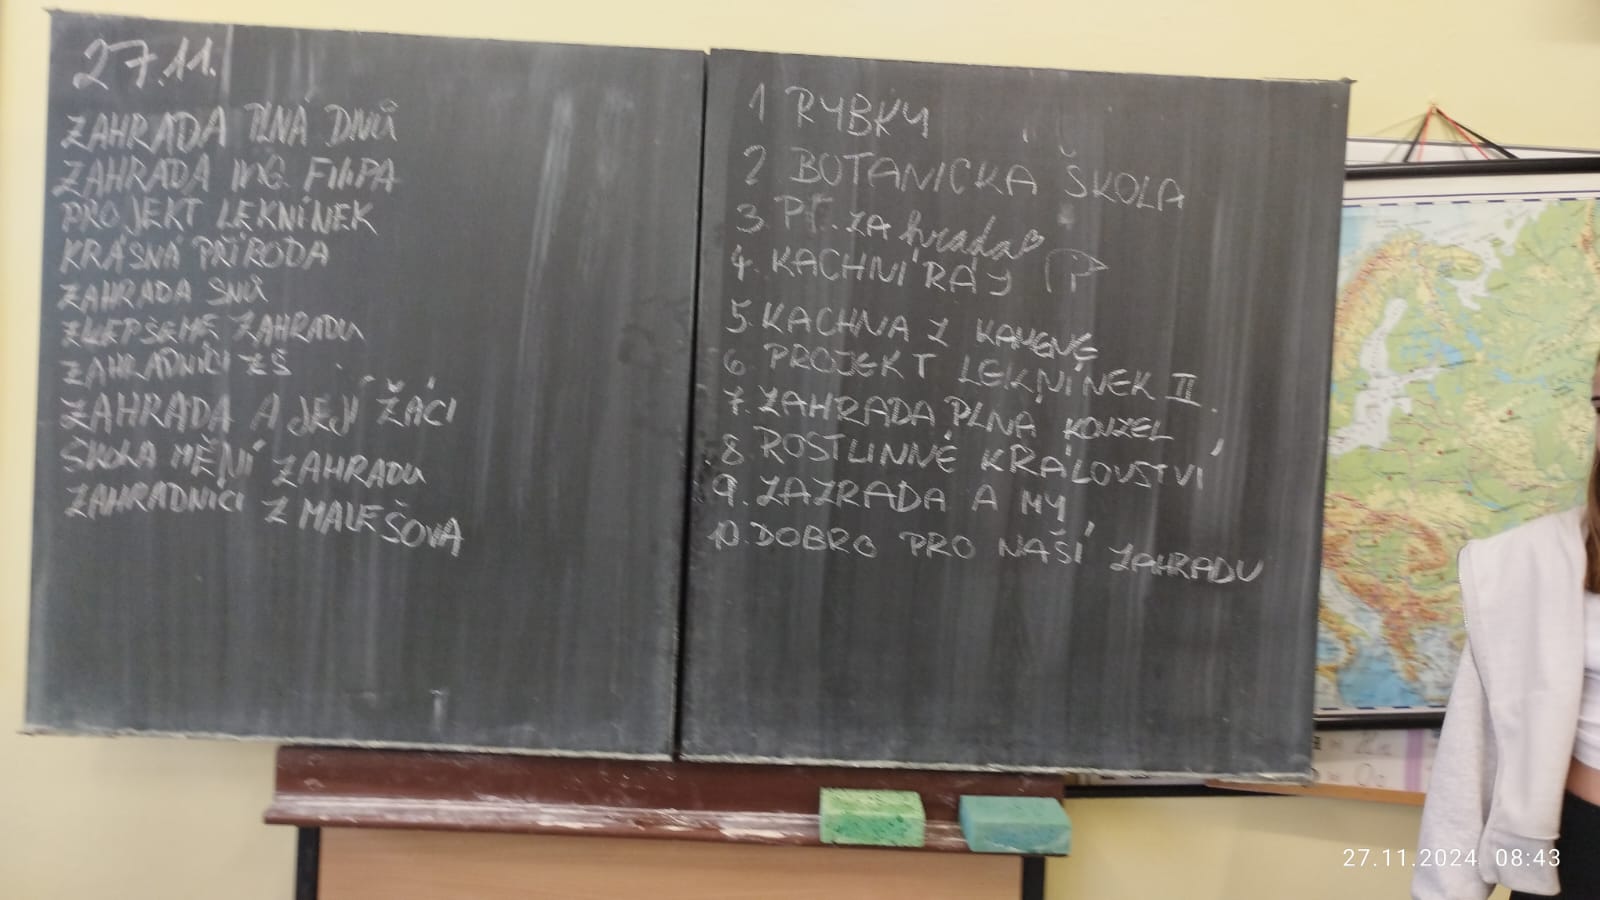 27.11.
ZAHRADA PLNÁ DNŮ
ZAHRADA ING. FILIPA
PROJEKT LEKNÍNEK
KRÁSNÁ PŘÍRODA
ZAHRADA SNŮ
ZLEPŠEME ZAHRADU
ZAHRADNÍCI ZŠ
ZAHRADA A JEJÍ ŽÁCI
ŠKOLA MĚNÍ ZAHRADU
ZAHRADNÍCI Z MALEŠOVA
1 RYBKY
2 BOTANICKÁ ŠKOLA
3 PF. ZAhrada
4. KACHNÍ RÁJ
5. KACHNA Z KAMENE
6. PROJEKT LEKNÍNEK II.
7. ZAHRADA PLNÁ KOUZEL
8 ROSTLINNÉ KRÁLOVSTVÍ
9. ZAZRADA A MY
10. DOBRO PRO NAŠÍ ZAHRADU
27.11.2024 08:43